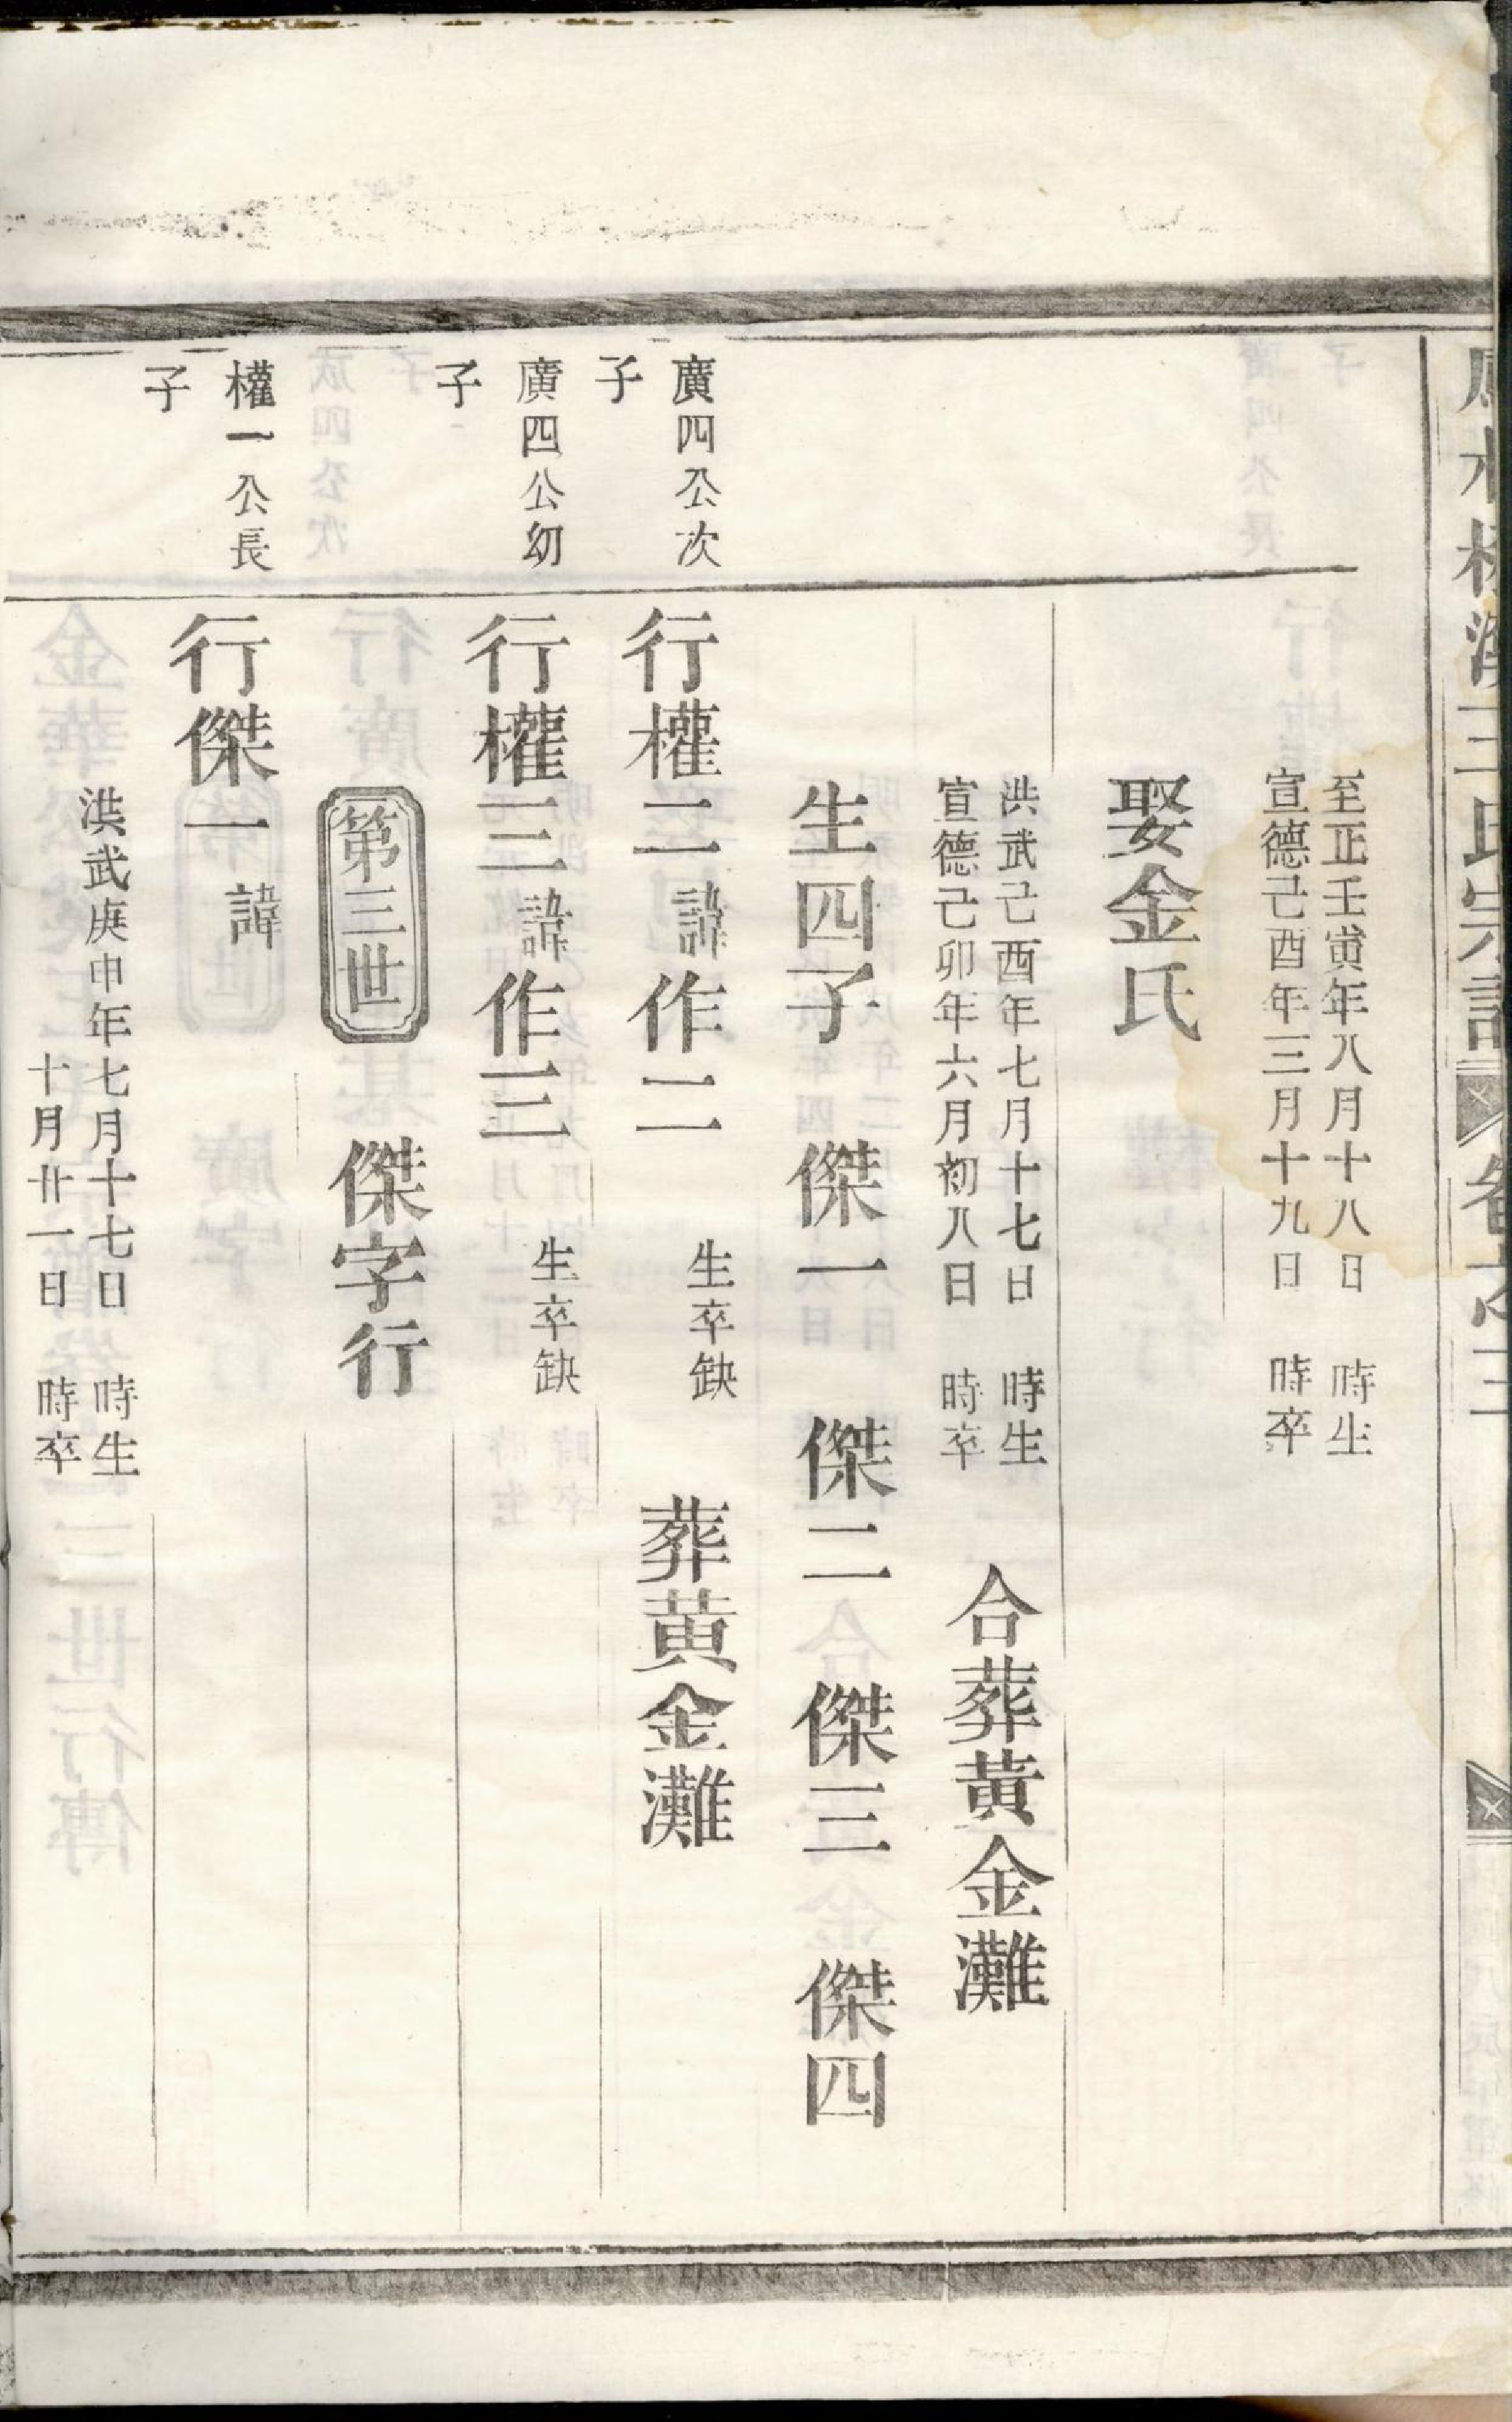 王氏宗譜 卷之三
至正壬寅年八月十八日 時生
宣德己酉年三月十九日 時卒
娶金氏
洪武己酉年七月十七日 時生
宣德己卯年六月初八日 時卒
合葬黃金灘
生四子 傑一 傑二 傑三 傑四
廣四公次
子
行權二諱作二 生卒缺 葬黃金灘
廣四公幼
子
行權三諱作三 生卒缺
第三世 傑字行
權一公長
子
行傑一 諱
洪武庚申年七月十七日 時生
十月廿一日 時卒